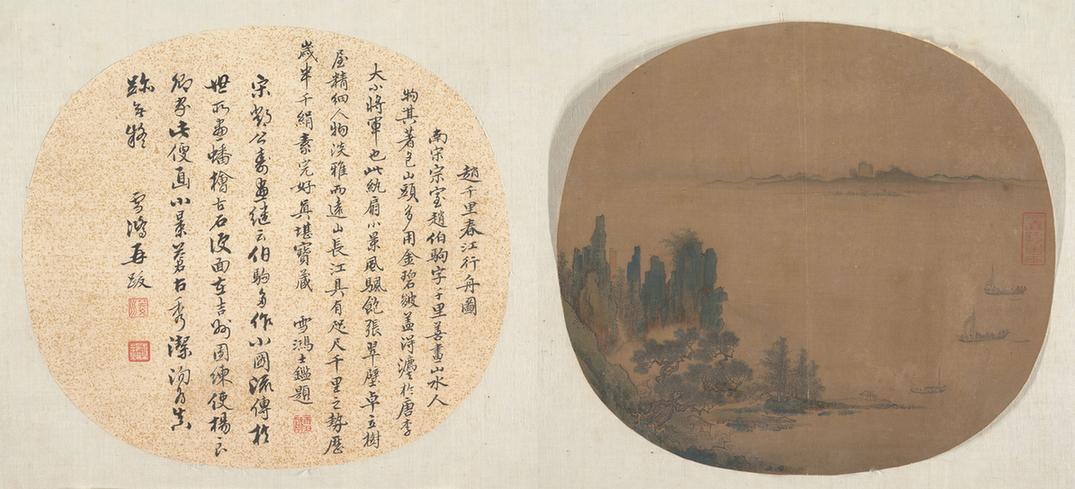 趙千里春江行舟圖
南宋宗室趙伯駒字千里善畫山水人
物其著色山頭多用金碧皴蓋得灋於唐李
大小將軍也此紈扇小景風颿飽張翠壁卓立樹
屋精細人物淡雅而遠山長江具有咫尺千里之勢歷
歲半千絹素完好眞堪寶藏 雪鴻士鑑題
宋鄧公壽畫繼云伯駒多作小圖流傳於
世所畫蟠檜古石便面在吉州團練使楊
家此便面小景蒼古秀潔洵爲真
跡無疑 雪鴻再跋